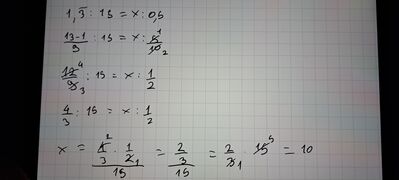 1,3̅ : 15 = x : 0,5
13-1/9 : 15 = x : 5̸¹/1̸0̸₂
1̸2̸⁴/9̸₃ : 15 = x : 1/2
4/3 : 15 = x : 1/2
x = (4̸²/3 · 1/2̸₁)/15 = (2/3)/15 = 2/3̸₁ · 1̸5̸⁵ = 10